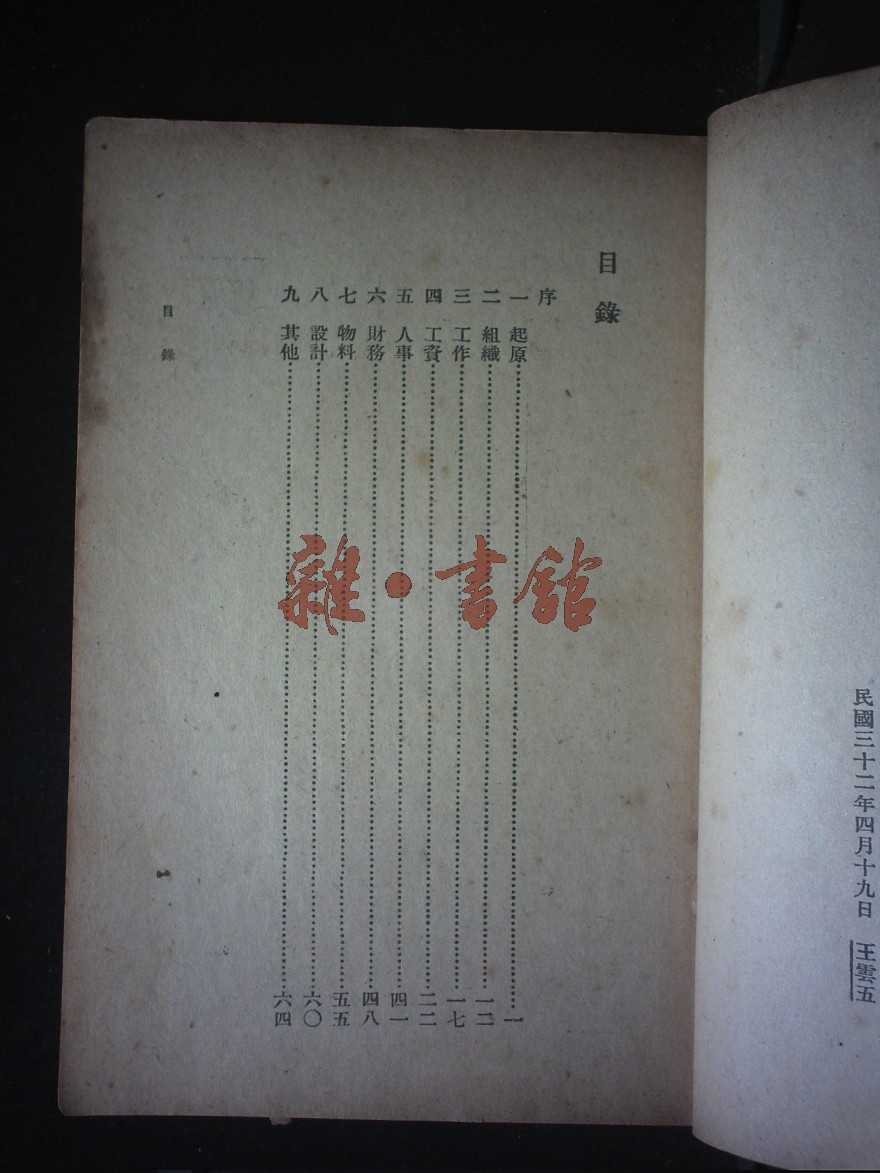 民國三十二年四月十九日 王雲五
目錄
序
一 起原……一
二 組織……一二
三 工作……一七
四 工資……二二
五 人事……四一
六 財務……四八
七 物料……五五
八 設計……六〇
九 其他……六四
目錄
一
雜•書館